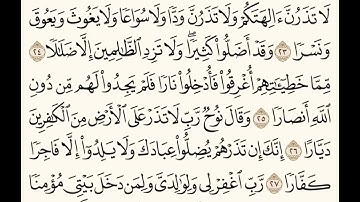 لَا تَذَرُنَّ ءَالِهَتَكُمْ وَلَا تَذَرُنَّ وَدًّا وَلَا سُوَاعًا وَلَا يَغُوثَ وَيَعُوقَ
وَنَسْرًا ٢٣ وَقَدْ أَضَلُّوا۟ كَثِيرًا ۖ وَلَا تَزِدِ ٱلظَّـٰلِمِينَ إِلَّا ضَلَـٰلًا ٢٤
مِّمَّا خَطِيٓـَٔـٰتِهِمْ أُغْرِقُوا۟ فَأُدْخِلُوا۟ نَارًا فَلَمْ يَجِدُوا۟ لَهُم مِّن دُونِ
ٱللَّهِ أَنصَارًا ٢٥ وَقَالَ نُوحٌ رَّبِّ لَا تَذَرْ عَلَى ٱلْأَرْضِ مِنَ ٱلْكَـٰفِرِينَ
دَيَّارًا ٢٦ إِنَّكَ إِن تَذَرْهُمْ يُضِلُّوا۟ عِبَادَكَ وَلَا يَلِدُوٓا۟ إِلَّا فَاجِرًا
كَفَّارًا ٢٧ رَّبِّ ٱغْفِرْ لِى وَلِوَٰلِدَىَّ وَلِمَن دَخَلَ بَيْتِىَ مُؤْمِنًا